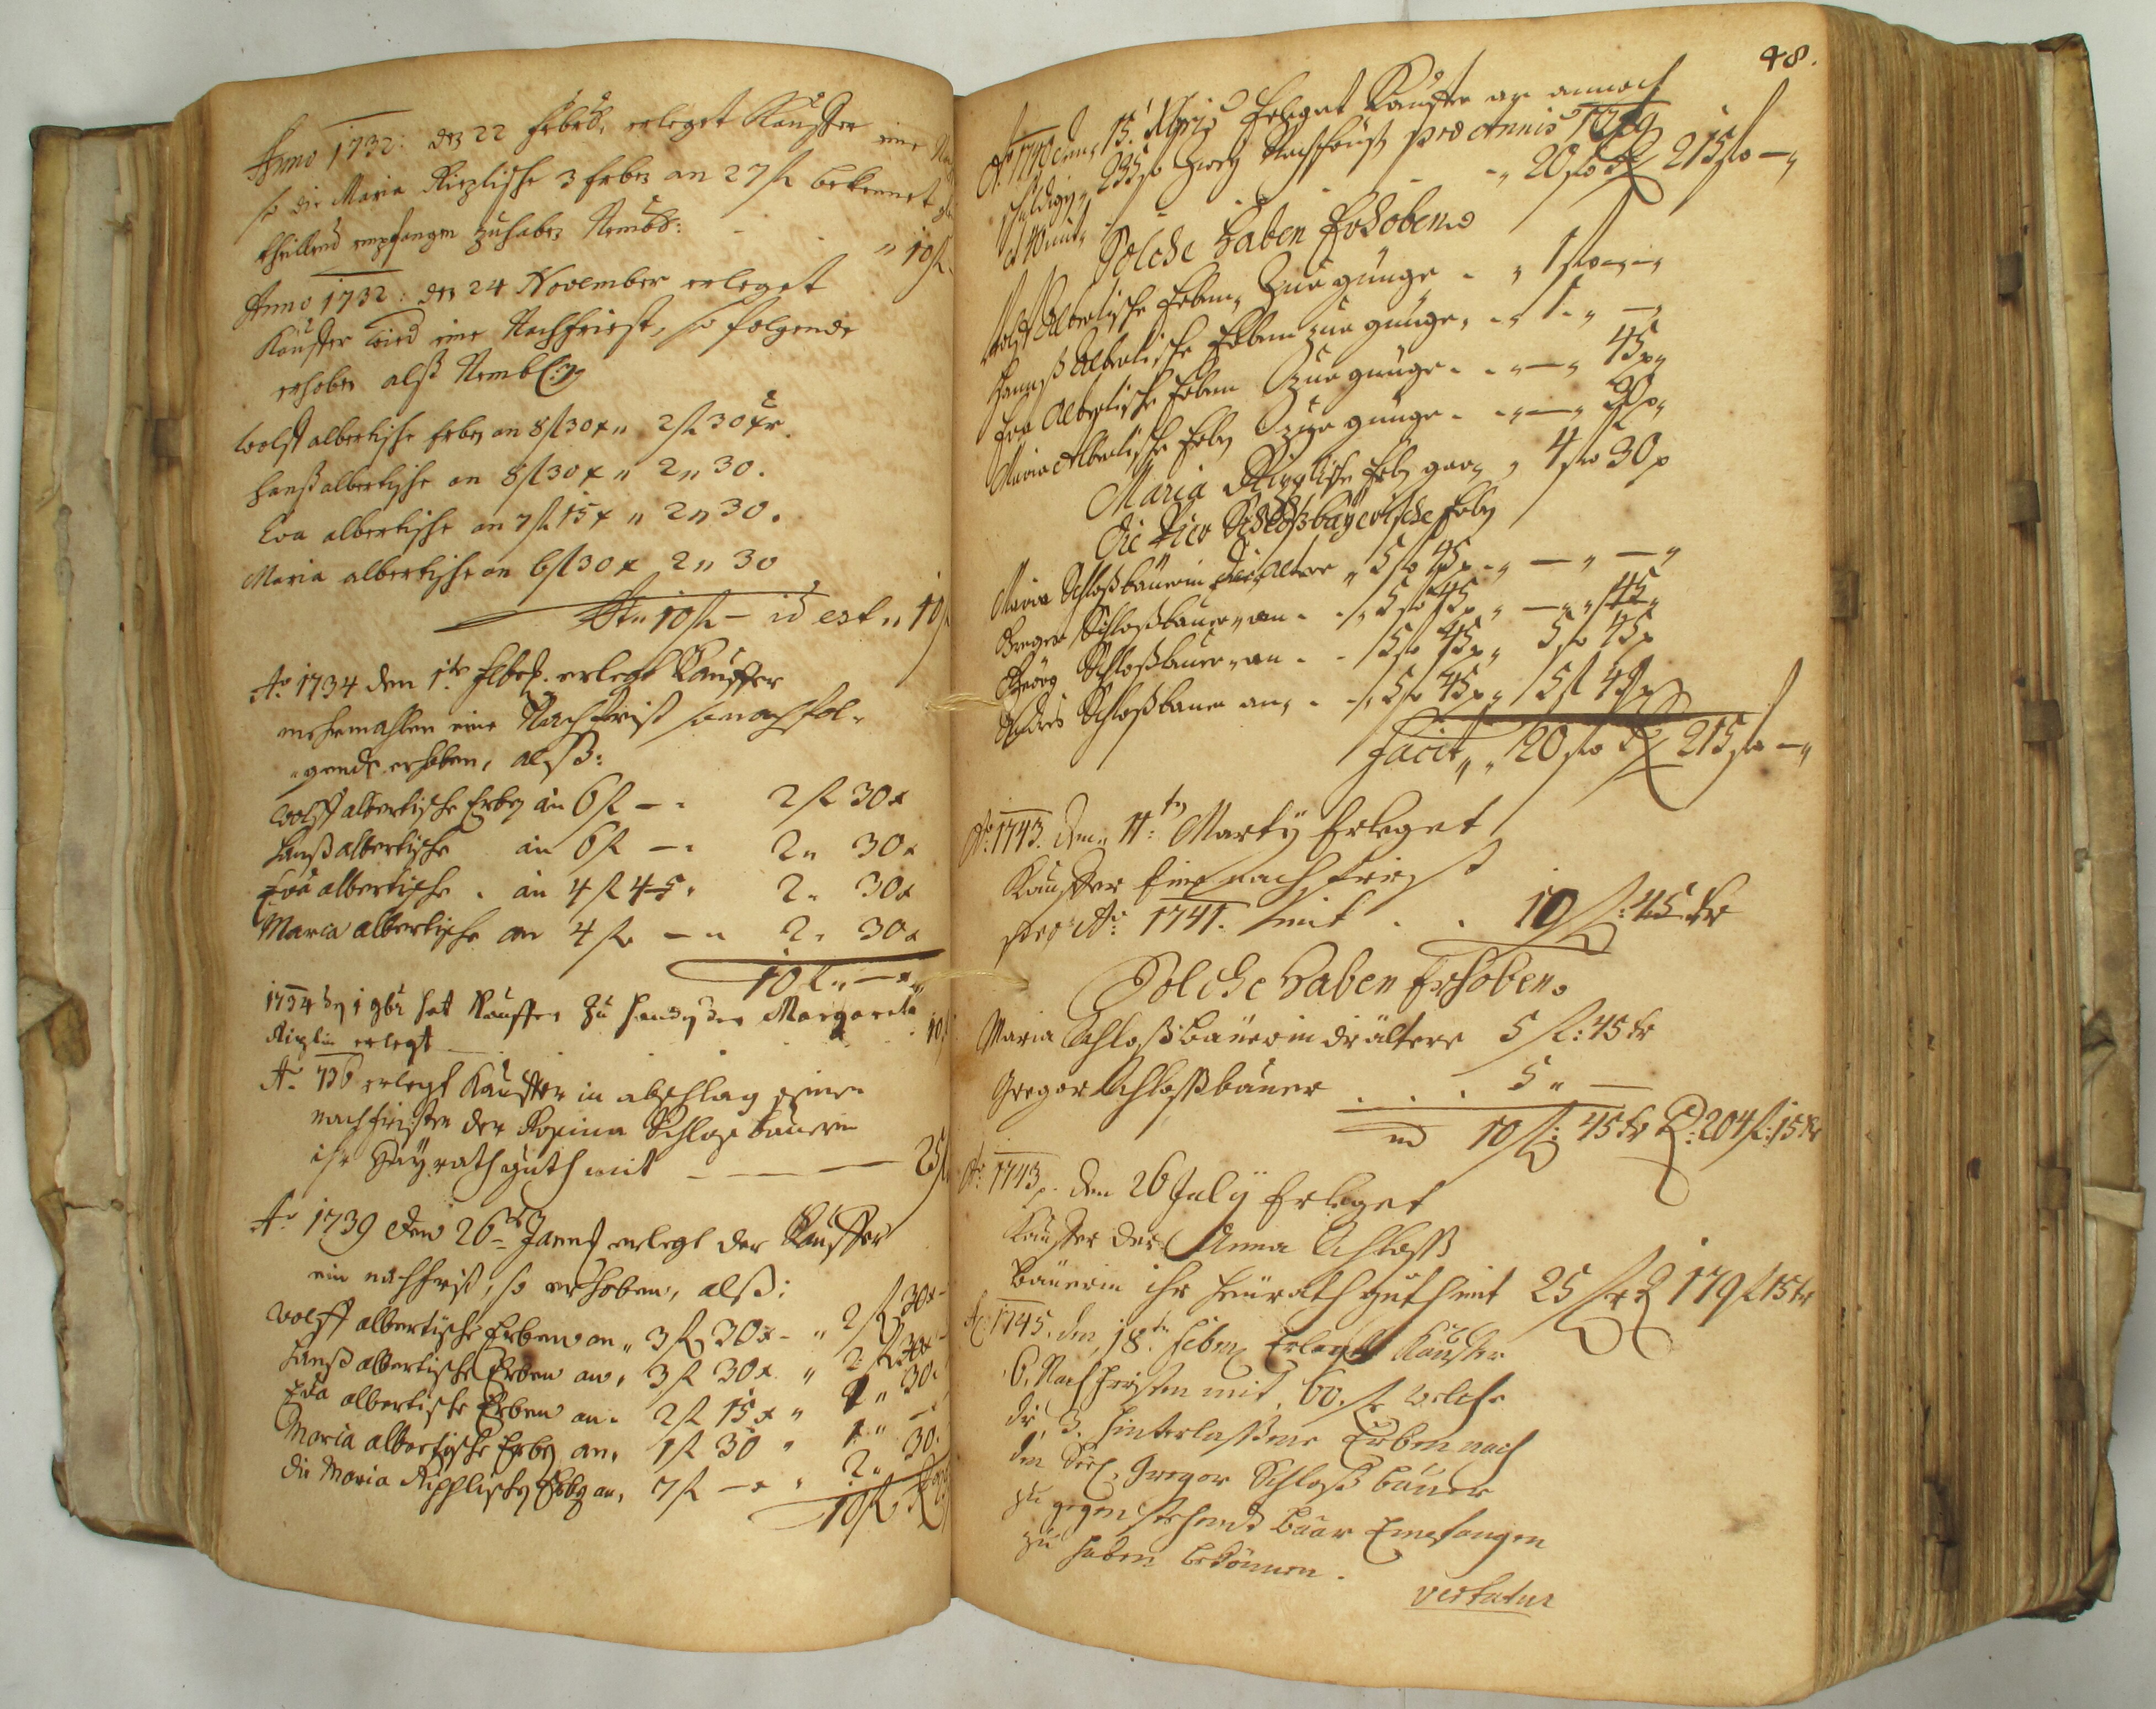 Anno 1732: den 22 Febr: erleget Kauffer eine
so die Maria Rizlische 3 Erben an 27 fl bekennet
empfangen zuhaben Nembl: " 10 fl
Anno 1732: den 24 November erleget
Kauffer wied eine Nachfrist, so folgende
erhoben alß Nembl:
Wolff albertische Erben an 8 fl 30 x " 2 fl 30 xr.
Hanß albertische an 8 fl 30 x " 2 " 30.
Eva albertische an 7 fl 15 x " 2 " 30.
Maria albertische an 6 fl 30 x 2 " 30
10 fl — id est " 10
Ao 1734 den 1te erlegt Kauffer
mehrmahlen eine Nachfrist so nachfol-
gende erhoben, alß:
Wolff albertische Erben an 6 fl — 2 fl 30 x
Hanß albertische an 6 fl — 2 " 30 x
Eva albertische . an 4 fl 45 " 2 " 30 x
Maria albertische an 4 fl — " 2 " 30 x
10 fl " — x
1734 den 1 9br hat Kauffer zu handen der Margareta
Rizlin erlegt 10
Ao 736 erlegt Kauffer in abschlag seiner
nachfristen der Rosina Schlosbäuerin
ihr Heyrathguth mit — — — 25
Ao 1739 den 26 erlegt der Kauffer
ein nachfrist, so erhoben, alß:
Wolff albertische Erben an " 3 fl 30 x — " 2 fl 30 x
Hanß albertische Erben an " 3 fl 30 x "
Eva albertische Erben an " 2 fl 15 x " 30
Maria albertische Erben an " 1 fl 30 " 1 " —
Die Maria Erben an " 7 fl — x " 2 " 30
10 fl
48.
Ao 1740 den 15. Erleget Kauffer an annoch
schuldigen 235 fl zwey Nachfrist pro Annis
mit 20 fl 215 fl —
Solche haben Erhoben
Wolff Albertische Erben, zur gnüge . " 1 fl — " —
Hannß Albertische Erben zur gnüge, . " 1 . " —
Eva Albertische Erben zur gnüge . . " — " 45 x
Maria Albertische Erben zur gnüge . . " — "
Maria Erben gar, " 4 fl 30 x
Die Vier Schloßbäyerische Erben
Maria Schloßbäuerin die Altere " 5 fl 45 x . " — " — "
Gregor Schloßbauer, an . . 5 fl 45 x " — " 45 "
Georg Schloßbauer, an . . 5 fl 45 x " 5 fl 45 x
Schloßbauer an, . . 5 fl 45 x " 5 fl 45 x
Facit " " 20 fl 215 fl — "
Ao: 1743. den 11ten Marty Erleget
Kauffer Eine nachfrist
pro Ao: 1741. mit . . 10 fl: 45 kr
Solche haben Erhoben.
Maria Schloßbäuerin die ältere 5 fl: 45 kr
Gregor Schloßbäuer . . . 5 " —
10 fl: 45 kr R: 204 fl: 15 kr
Ao: 1743. den 26 July Erleget
Kauffer der Anna Schloß
bäuerin ihr heürathguth mit 25 fl R 179 fl 15 kr
Ao 1745. den 18t Erleget Kauffer
6. Nachfristen mit 60. fl welche
die 3. hinterlassene Erben nach
den Seel. Gregor Schloßbauer
zu gegenstehend baar Empfangen
zu haben bekönnen.
vertatur